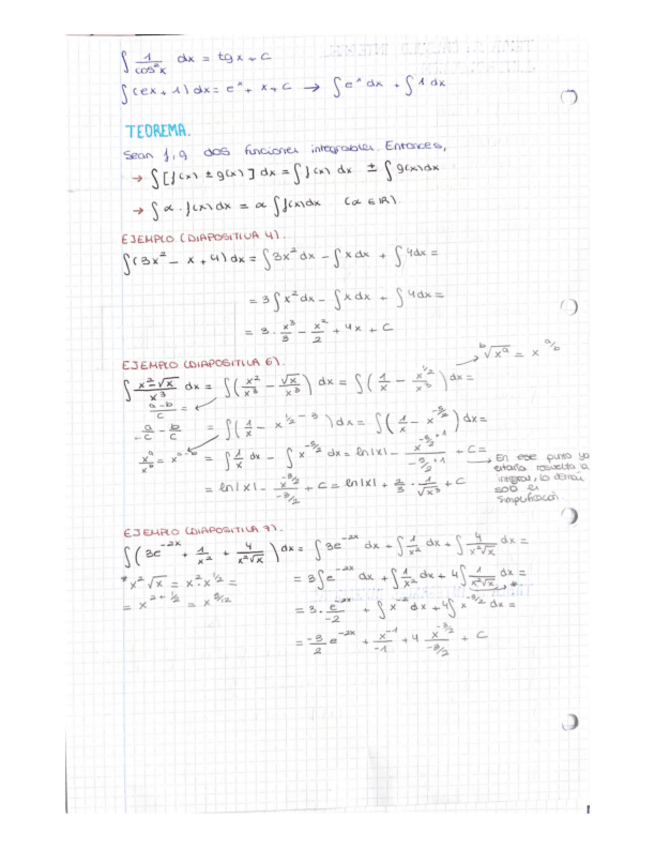 ∫ 1/cos²x dx = tg x + C
∫(ex + 1) dx = eˣ + x + C → ∫eˣ dx + ∫1 dx
TEOREMA.
Sean f, g dos funciones integrables. Entonces,
→ ∫[f(x) ± g(x)] dx = ∫f(x) dx ± ∫g(x) dx
→ ∫α · f(x) dx = α ∫f(x) dx (α ∈ IR).
EJEMPLO (DIAPOSITIVA 4).
∫(3x² - x + 4) dx = ∫3x² dx - ∫x dx + ∫4 dx =
= 3∫x² dx - ∫x dx + ∫4 dx =
= 3 · x³/3 - x²/2 + 4x + C
EJEMPLO (DIAPOSITIVA 6).
→ ᵇ√xᵃ = x^(a/b)
∫ (x² - √x)/x³ dx = ∫(x²/x³ - √x/x³) dx = ∫(1/x - x^(1/2)/x³) dx =
(a-b)/c =
a/c - b/c = ∫(1/x - x^(1/2 - 3)) dx = ∫(1/x - x^(-5/2)) dx =
xᵃ/xᵇ = x^(a-b) = ∫1/x dx - ∫x^(-5/2) dx = ln|x| - x^(-5/2 + 1)/(-5/2 + 1) + C =
→ En ese punto ya
estaría resuelta la
integral, lo demás
solo es
simplificación.
= ln|x| - x^(-3/2)/(-3/2) + C = ln|x| + 2/3 · 1/√x³ + C
EJEMPLO (DIAPOSITIVA 7).
∫(3e^(-2x) + 1/x² + 4/(x²√x)) dx = ∫3e^(-2x) dx + ∫1/x² dx + ∫4/(x²√x) dx =
* x²√x = x² · x^(1/2) = = 3∫e^(-2x) dx + ∫1/x² dx + 4∫1/(x²√x) dx =
= x^(2 + 1/2) = x^(5/2) = 3 · e^(-2x)/-2 + ∫x^(-2) dx + 4∫x^(-5/2) dx =
= -3/2 e^(-2x) + x^(-1)/-1 + 4 x^(-3/2)/(-3/2) + C